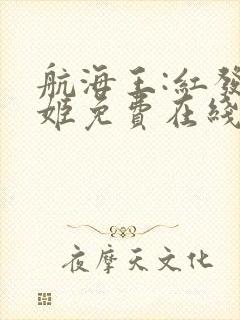 航海王:红發
姬免費在綫
夜摩天文化